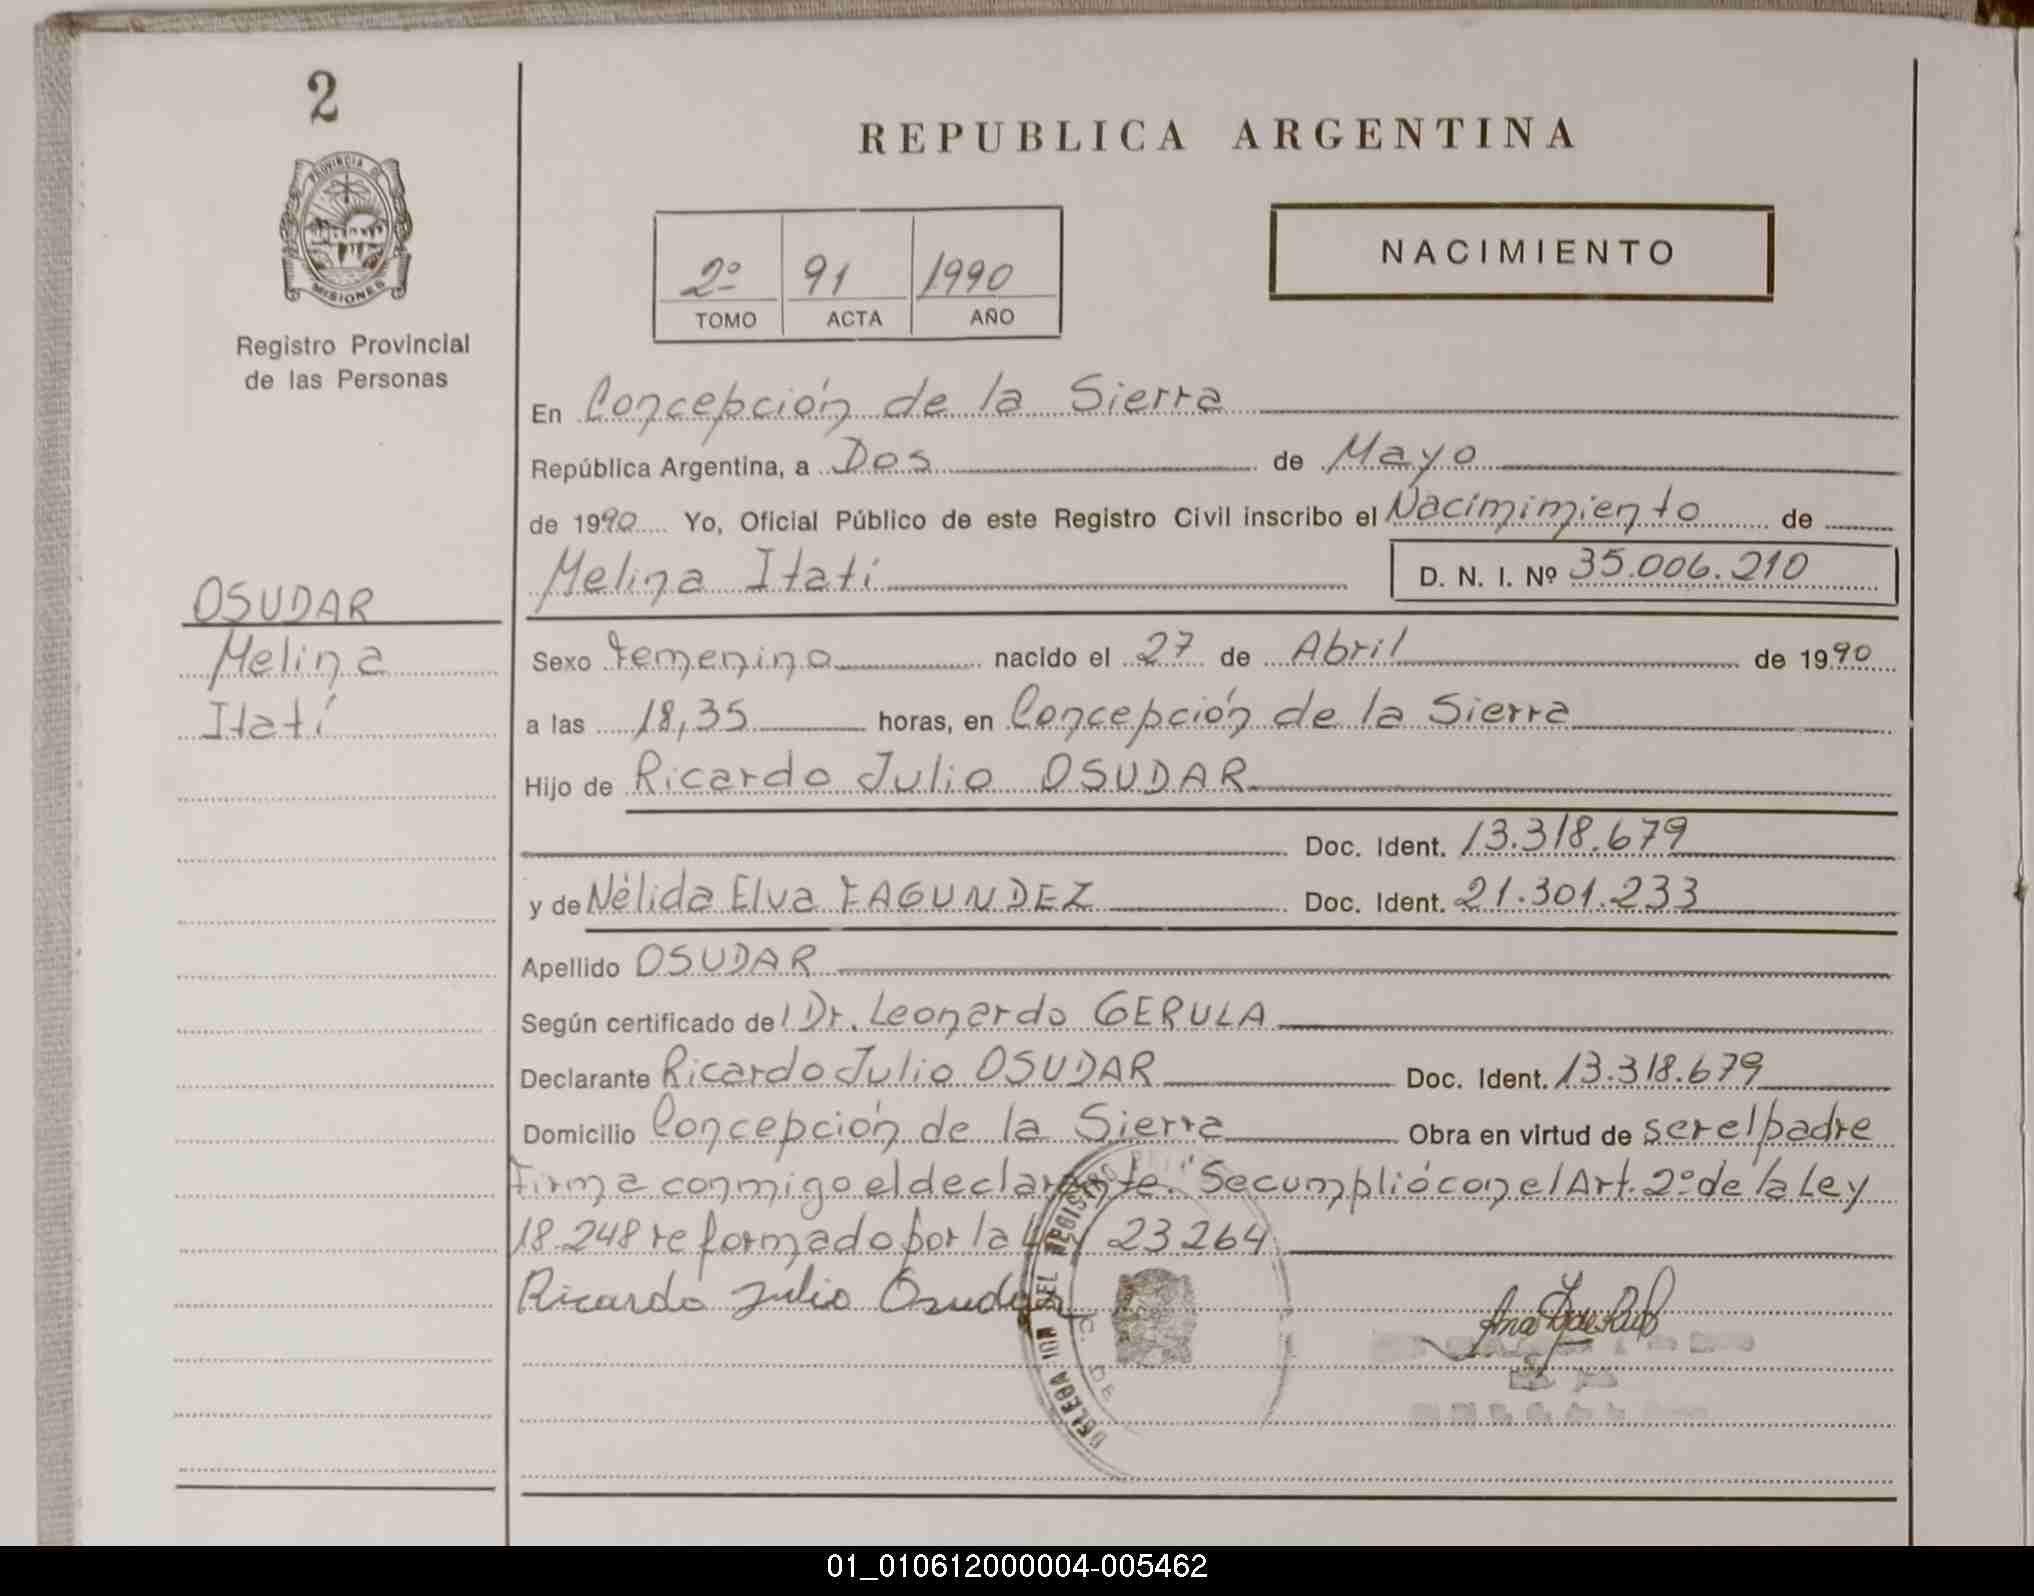 2
PROVINCIA DE
MISIONES
Registro Provincial
de las Personas
OSUDAR
Melina
Itatí
REPUBLICA ARGENTINA
2º 91 1990
TOMO ACTA AÑO
NACIMIENTO
En Concepción de la Sierra
República Argentina, a Dos de Mayo
de 1990 Yo, Oficial Público de este Registro Civil inscribo el Nacimimiento de
Melina Itatí D. N. I. Nº 35.006.210
Sexo Femenino nacido el 27 de Abril de 1990
a las 18,35 horas, en Concepción de la Sierra
Hijo de Ricardo Julio OSUDAR
Doc. Ident. 13.318.679
y de Nélida Elva FAGUNDEZ Doc. Ident. 21.301.233
Apellido OSUDAR
Según certificado del Dr. Leonardo GERULA
Declarante Ricardo Julio OSUDAR Doc. Ident. 13.318.679
Domicilio Concepción de la Sierra Obra en virtud de ser el padre
Firma conmigo el declarante. Se cumplió con el Art. 2º de la Ley
18.248 reformado por la Ley 23264
Ricardo Julio Osudar
DELEGACION DEL REGISTRO
01_010612000004-005462